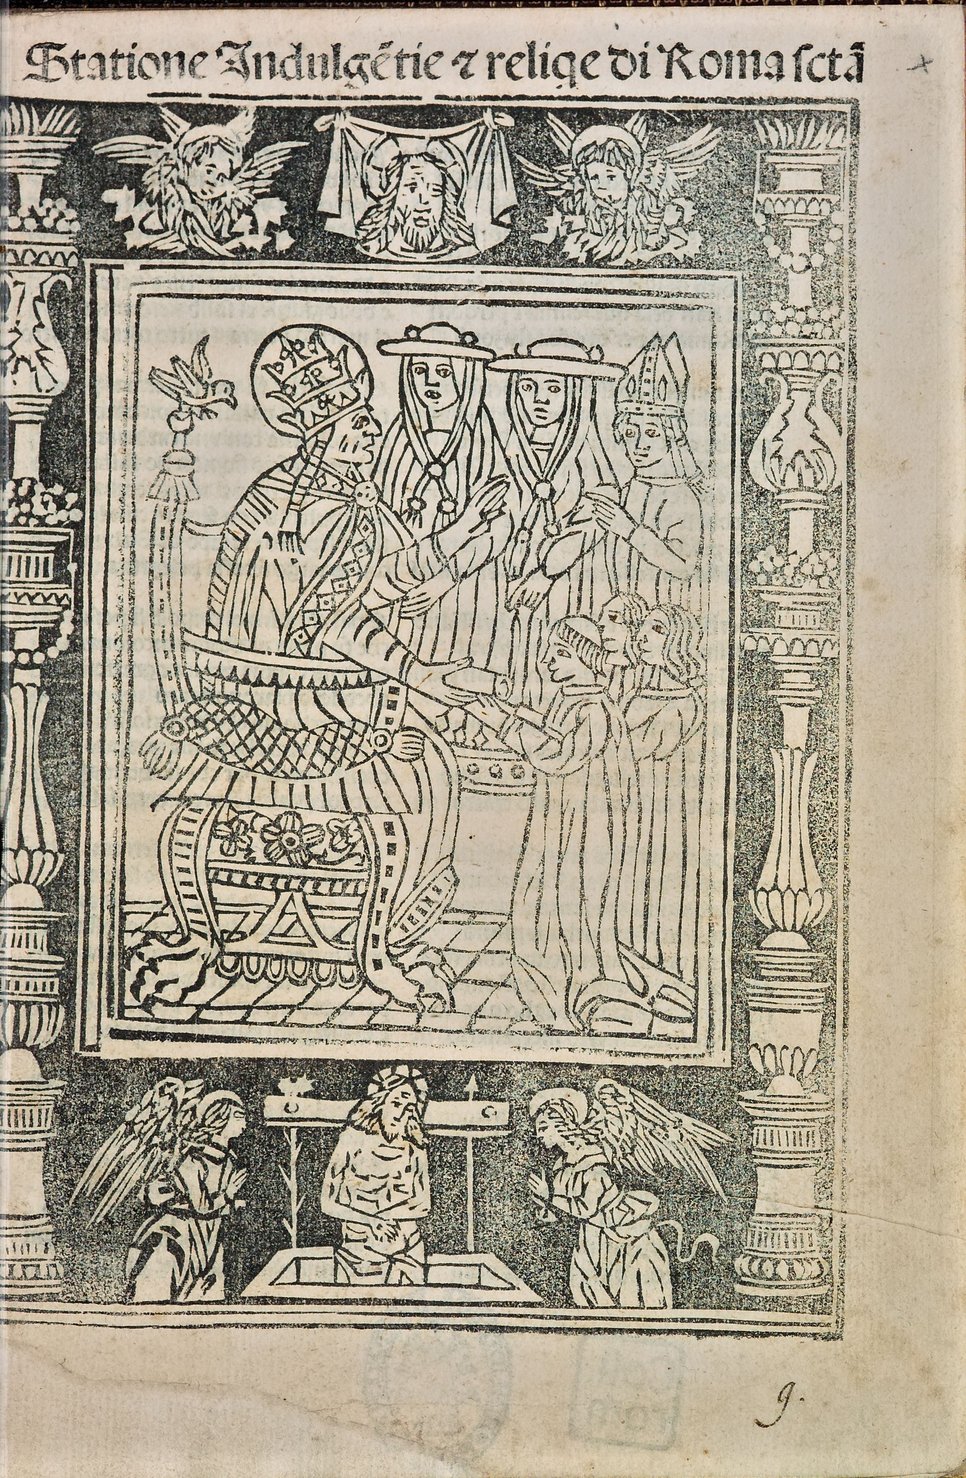 Statione Indulgẽtie ⁊ reliqe di Roma sctã
9.